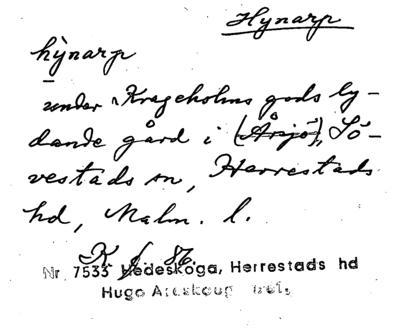 Hynarp
hỳnarp
under Krageholms gods ly-
dande gård i (Årsjö), Sö-
vestads sn, Herrestads
hd, Malm. l.
K 86.
Nr 7533 Hedeskoga, Herrestads hd
Hugo Areskoug